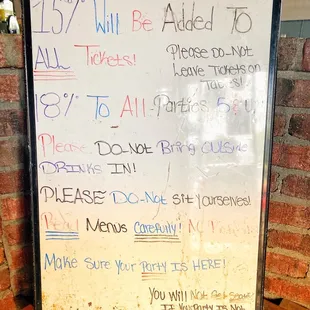 15% Will Be Added To
ALL Tickets!
Please DO-Not
Leave Tickets on
Tables!
18% To All-Parties 5
Please DO-Not Bring Outside
DRINKS IN!
PLEASE DO-Not sit Yourselves!
Read Menus Carefully! No
Make Sure Your Party IS HERE!
You Will Not Be Seated
If Your Party Is Not